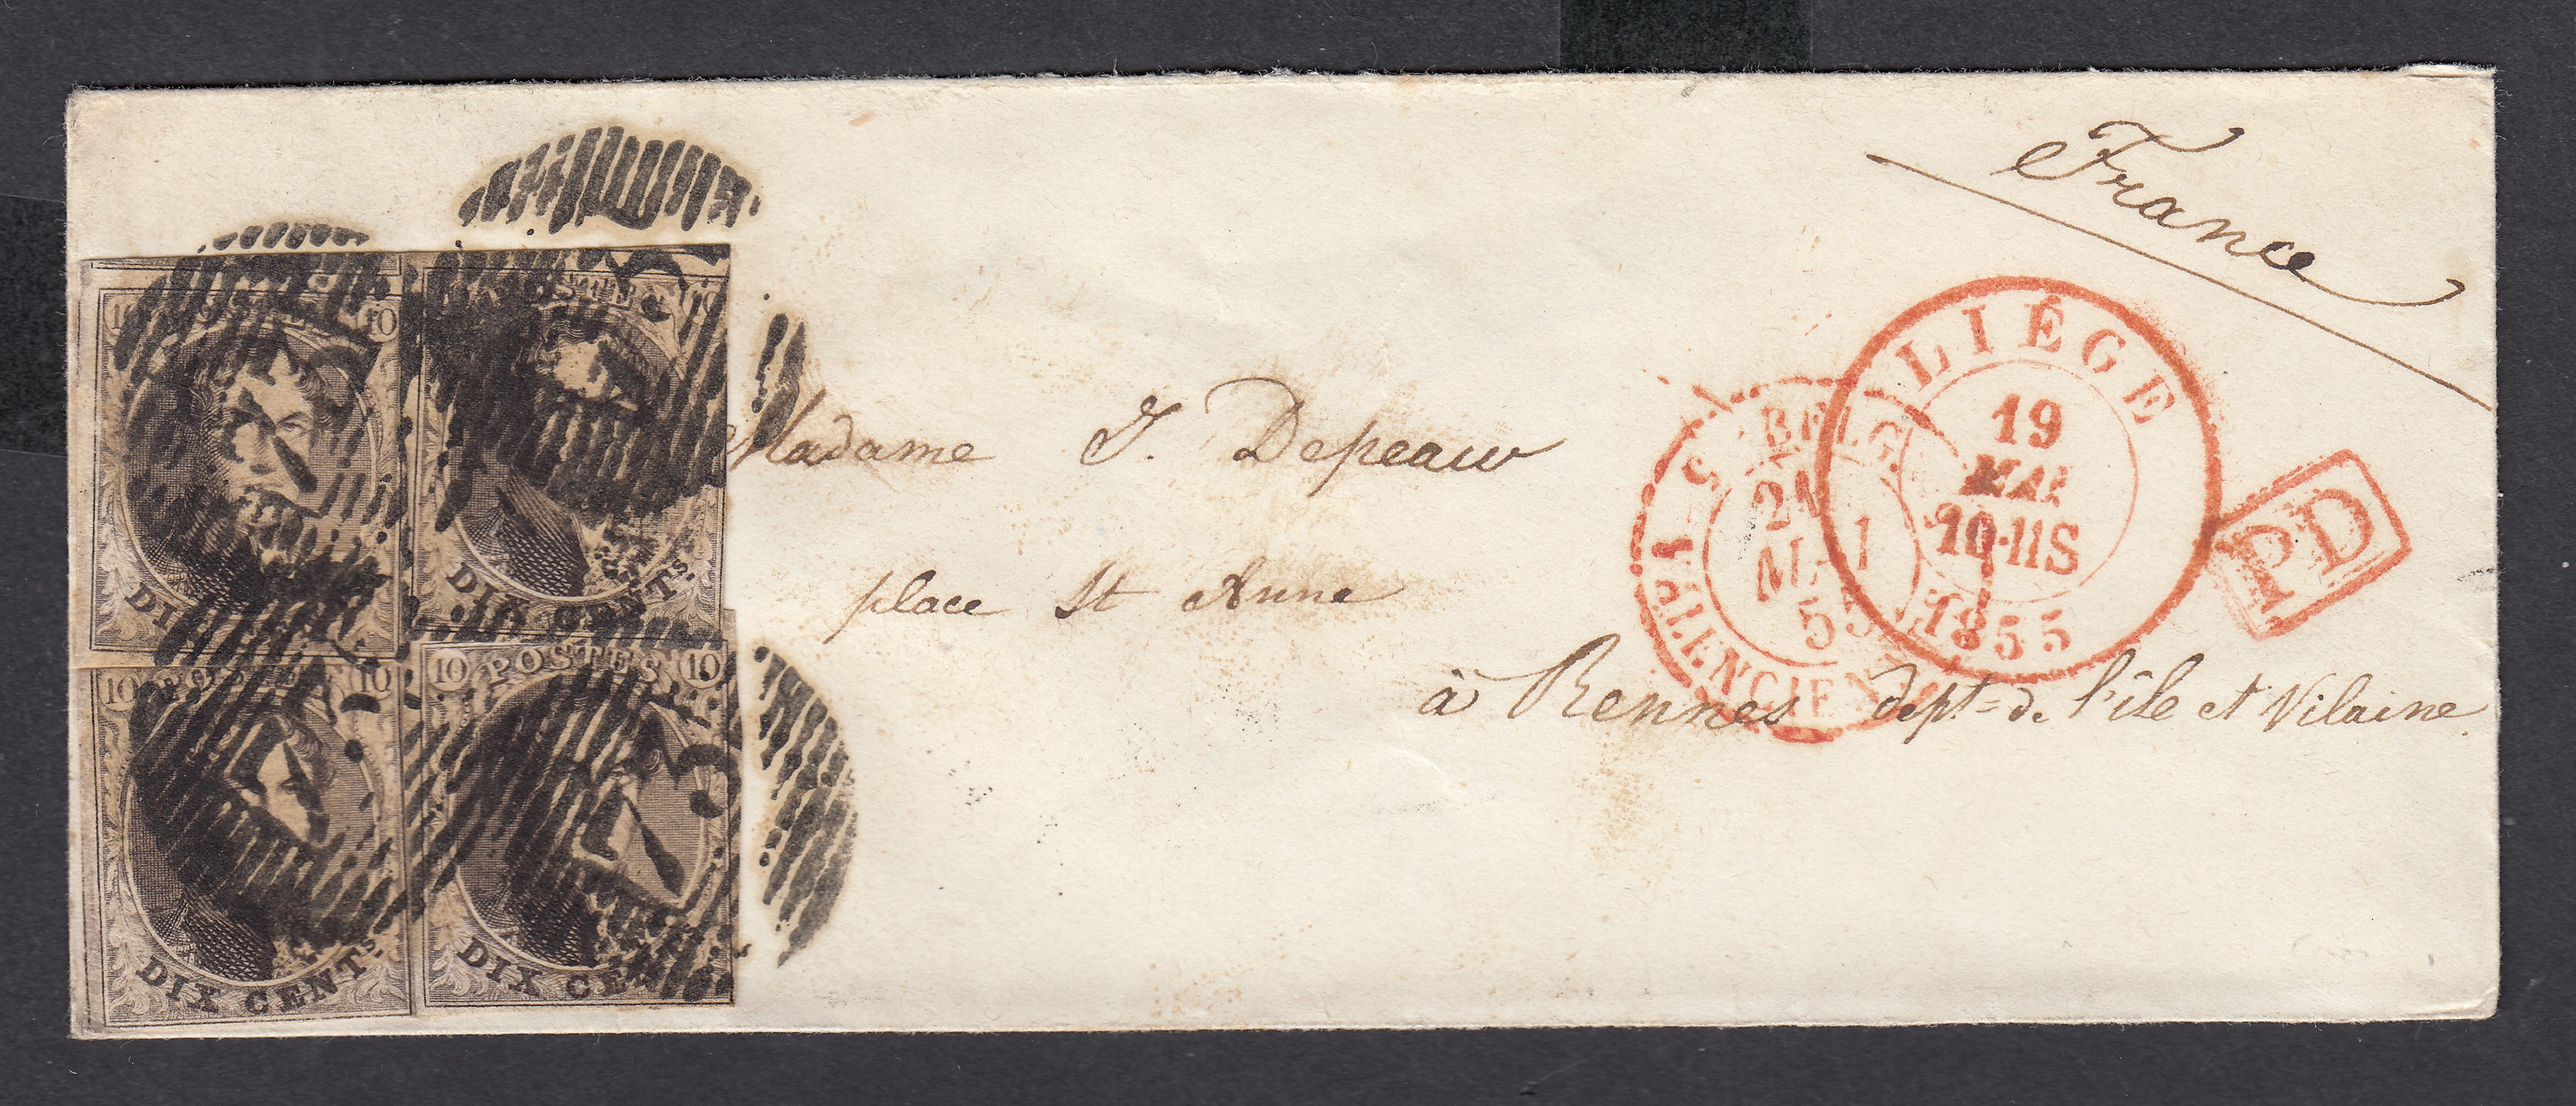 France
10 POSTES 10
DIX CENTS
10 POSTES 10
DIX CENTS
10 POSTES 10
DIX CENTS
73
LIÉGE
19
MAI
10-11S
1855
BELG.
21
MAI
55
VALENCIENNES
PD
Madame J. Depeaux
place St Anne
à Rennes dept= de l'île et Vilaine.